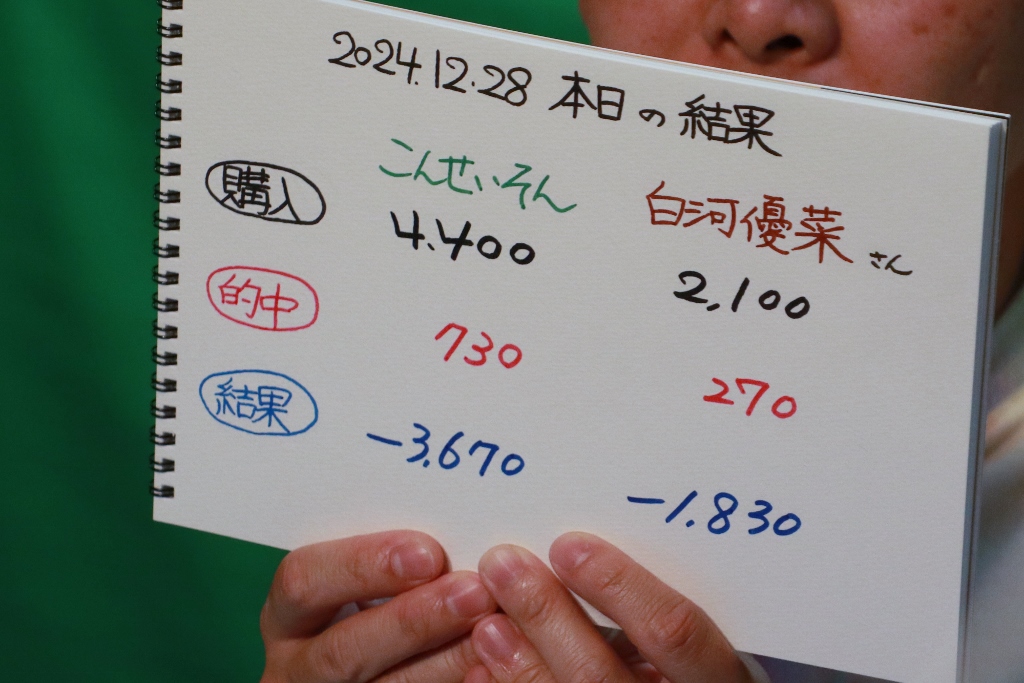 2024.12.28 本日の結果
こんせいそん 白河優菜さん
購入 4.400 2,100
的中 730 270
結果 -3.670 -1.830